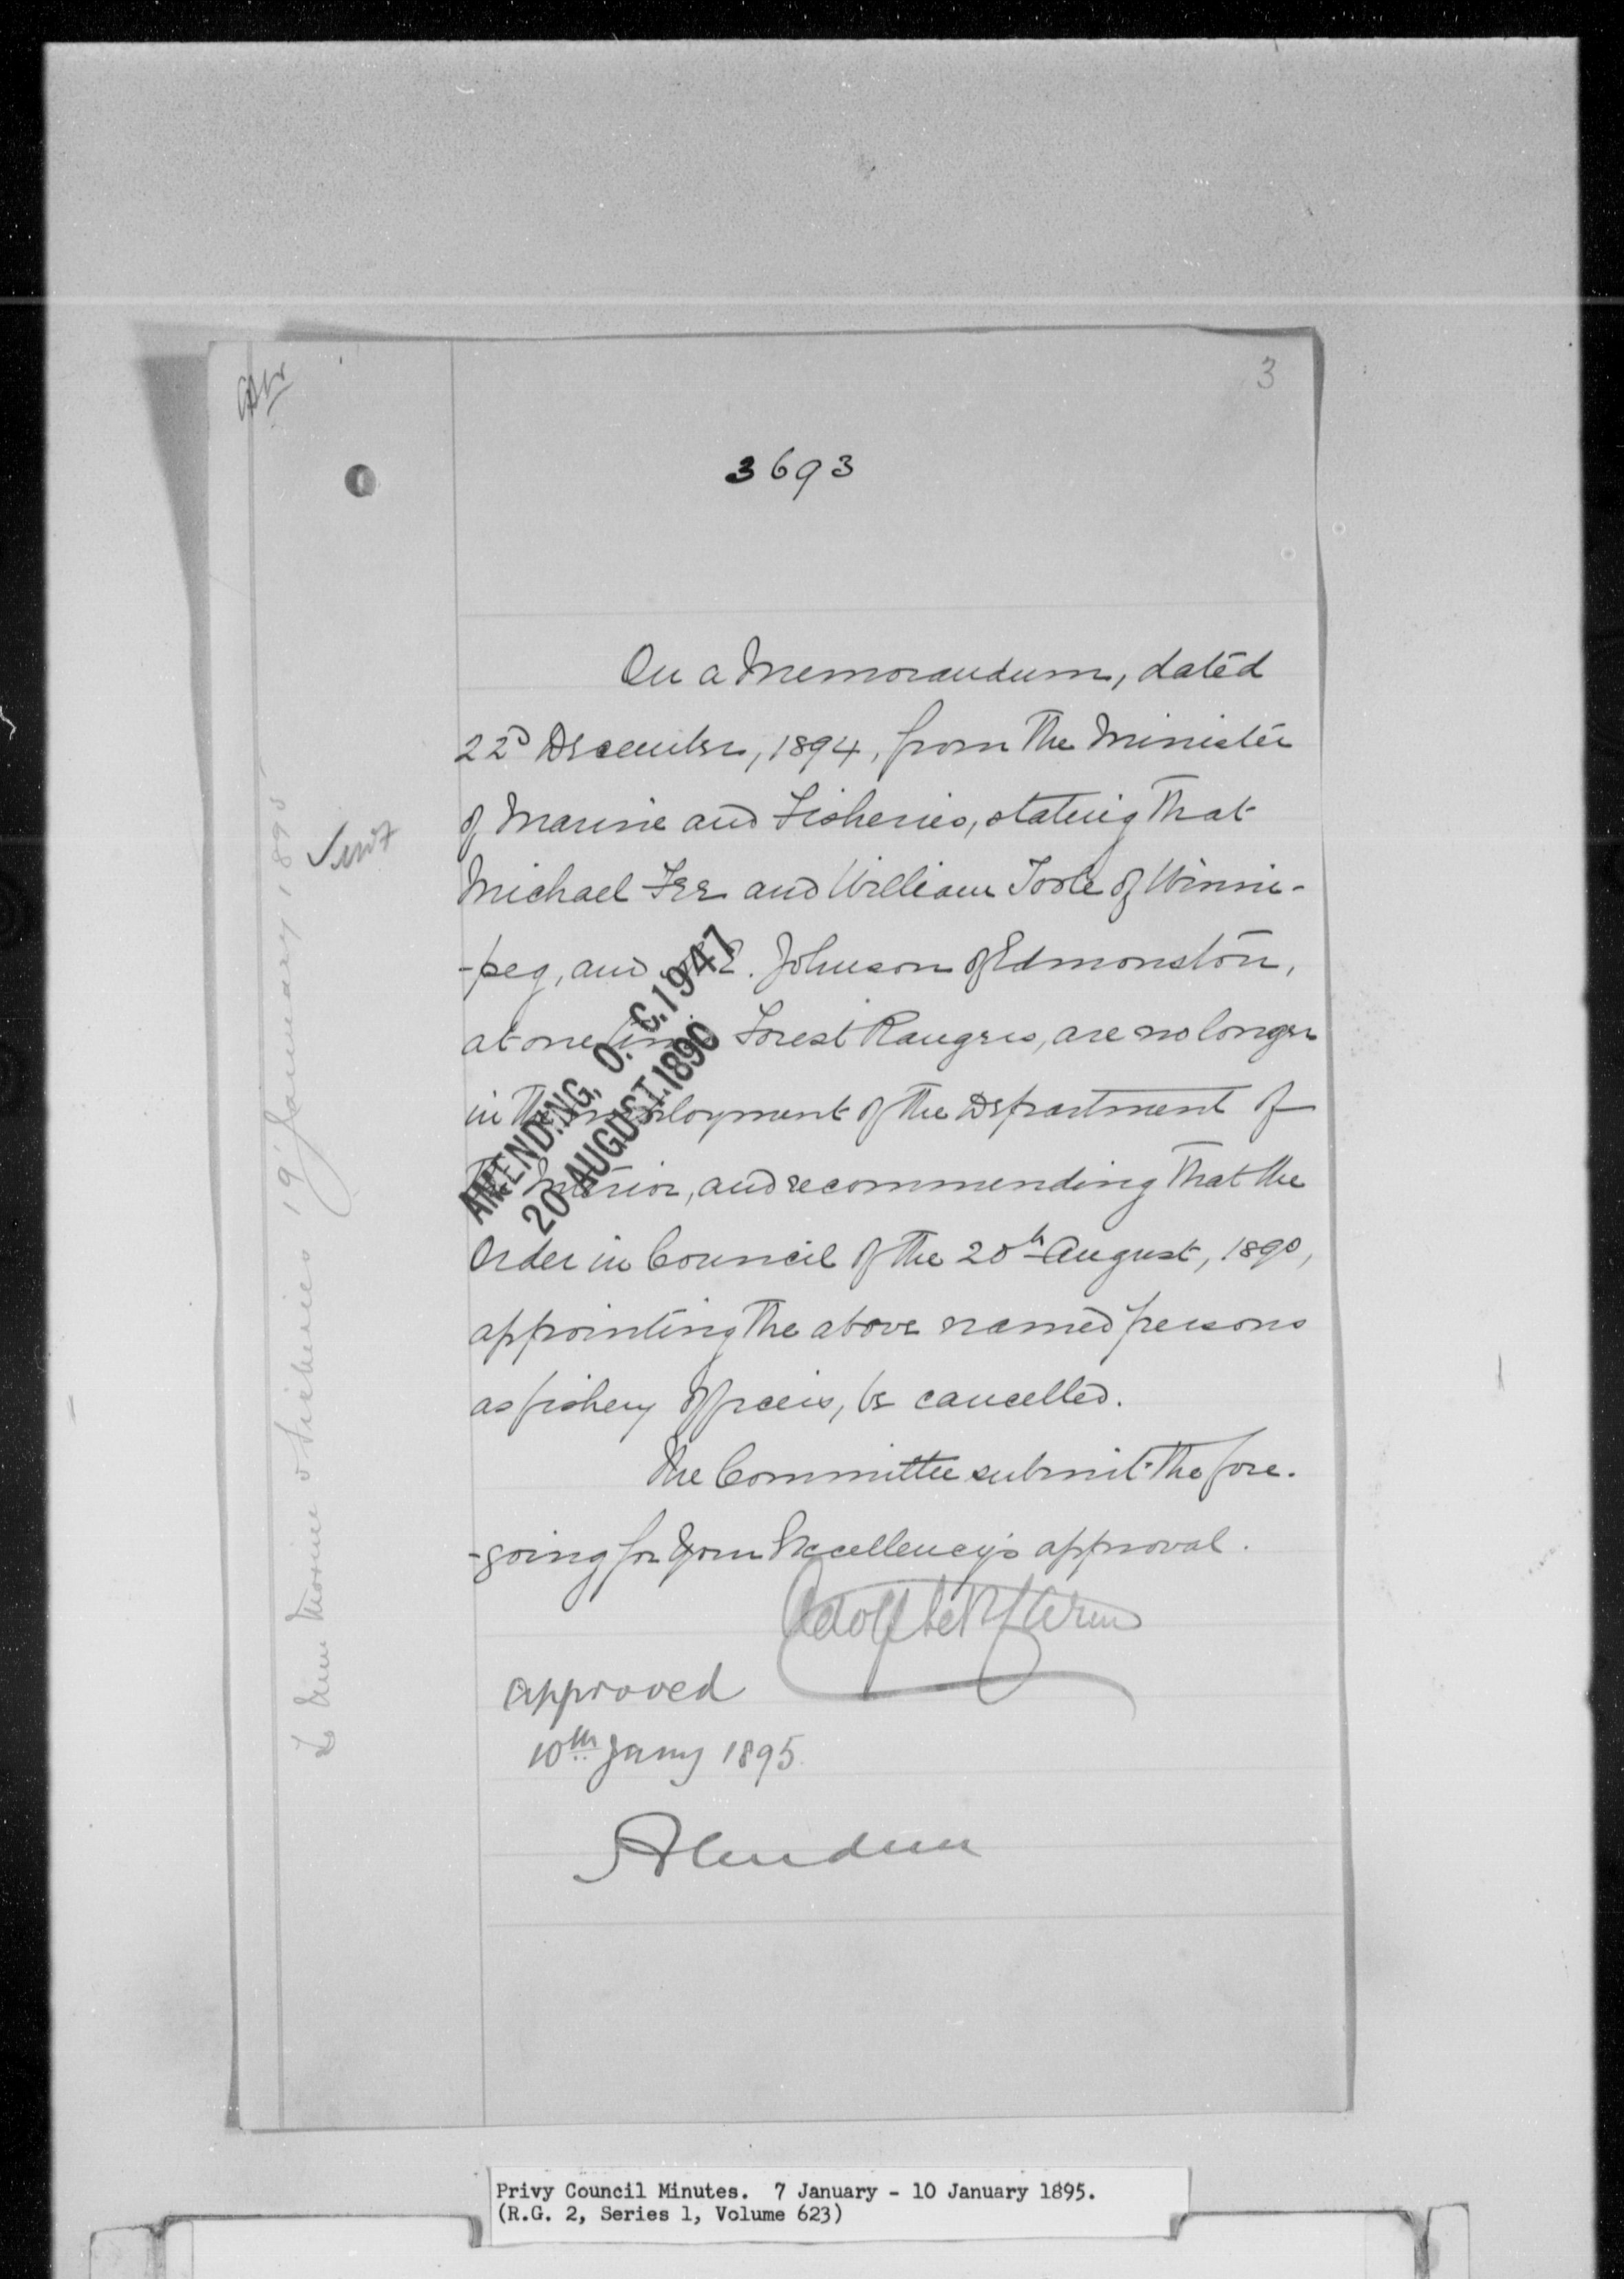 3
3693
On a Memorandum, dated
22D December, 1894, from the Minister
of Marine and Fisheries, stating that
Michael Fee and William Toole of Winni-
-peg, and E. Johnson of Edmonston,
at one time Forest Rangers, are no longer
in the employment of the Department of
the Interior, and recommending that the
Order in Council of the 20th August, 1890,
appointing the above named persons
as fishery officers, be cancelled.
The Committee submit the fore-
-going for Your Excellency's approval.
approved
10th Jany 1895
Aberdeen
AMENDING, O. C. 1947
20 AUGUST 1890
Marine & Fisheries 19 January 1895
Privy Council Minutes. 7 January - 10 January 1895.
(R.G. 2, Series 1, Volume 623)